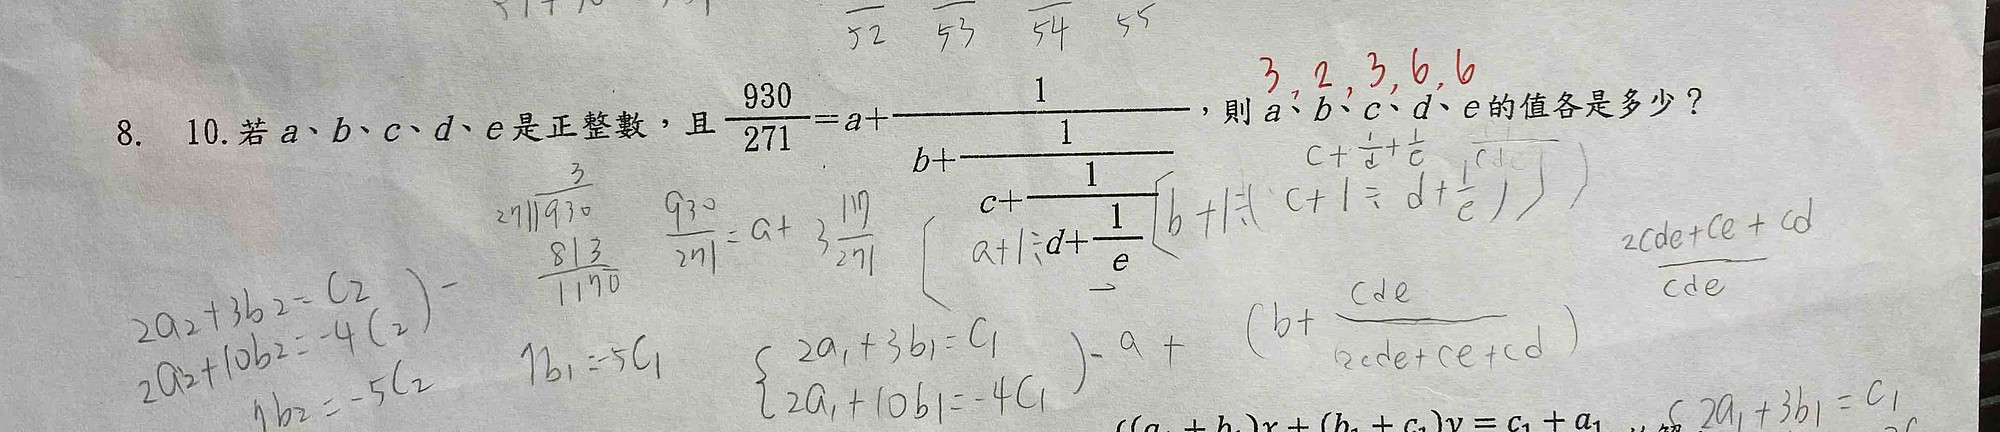 52 53 54 55
3, 2, 3, 6, 6
8. 10. 若 a、b、c、d、e 是正整數，且 930/271 = a + 1/(b + 1/(c + 1/(d + 1/e)))，則 a、b、c、d、e 的值各是多少？
c + 1/d + 1/e
3
271 930
813
1170
930/271 = a + 3 117/271
[a+1÷ [b+1÷( c+1÷ d+1/e )))
2cde+ce+cd / cde
2a2+3b2=C2
2a2+10b2=-4C2 ) -
7b2=-5C2
7b1=-5C1
{ 2a1+3b1=C1
2a1+10b1=-4C1 ) -
a + (b+ cde / 2cde+ce+cd )
2a1+3b1=C1